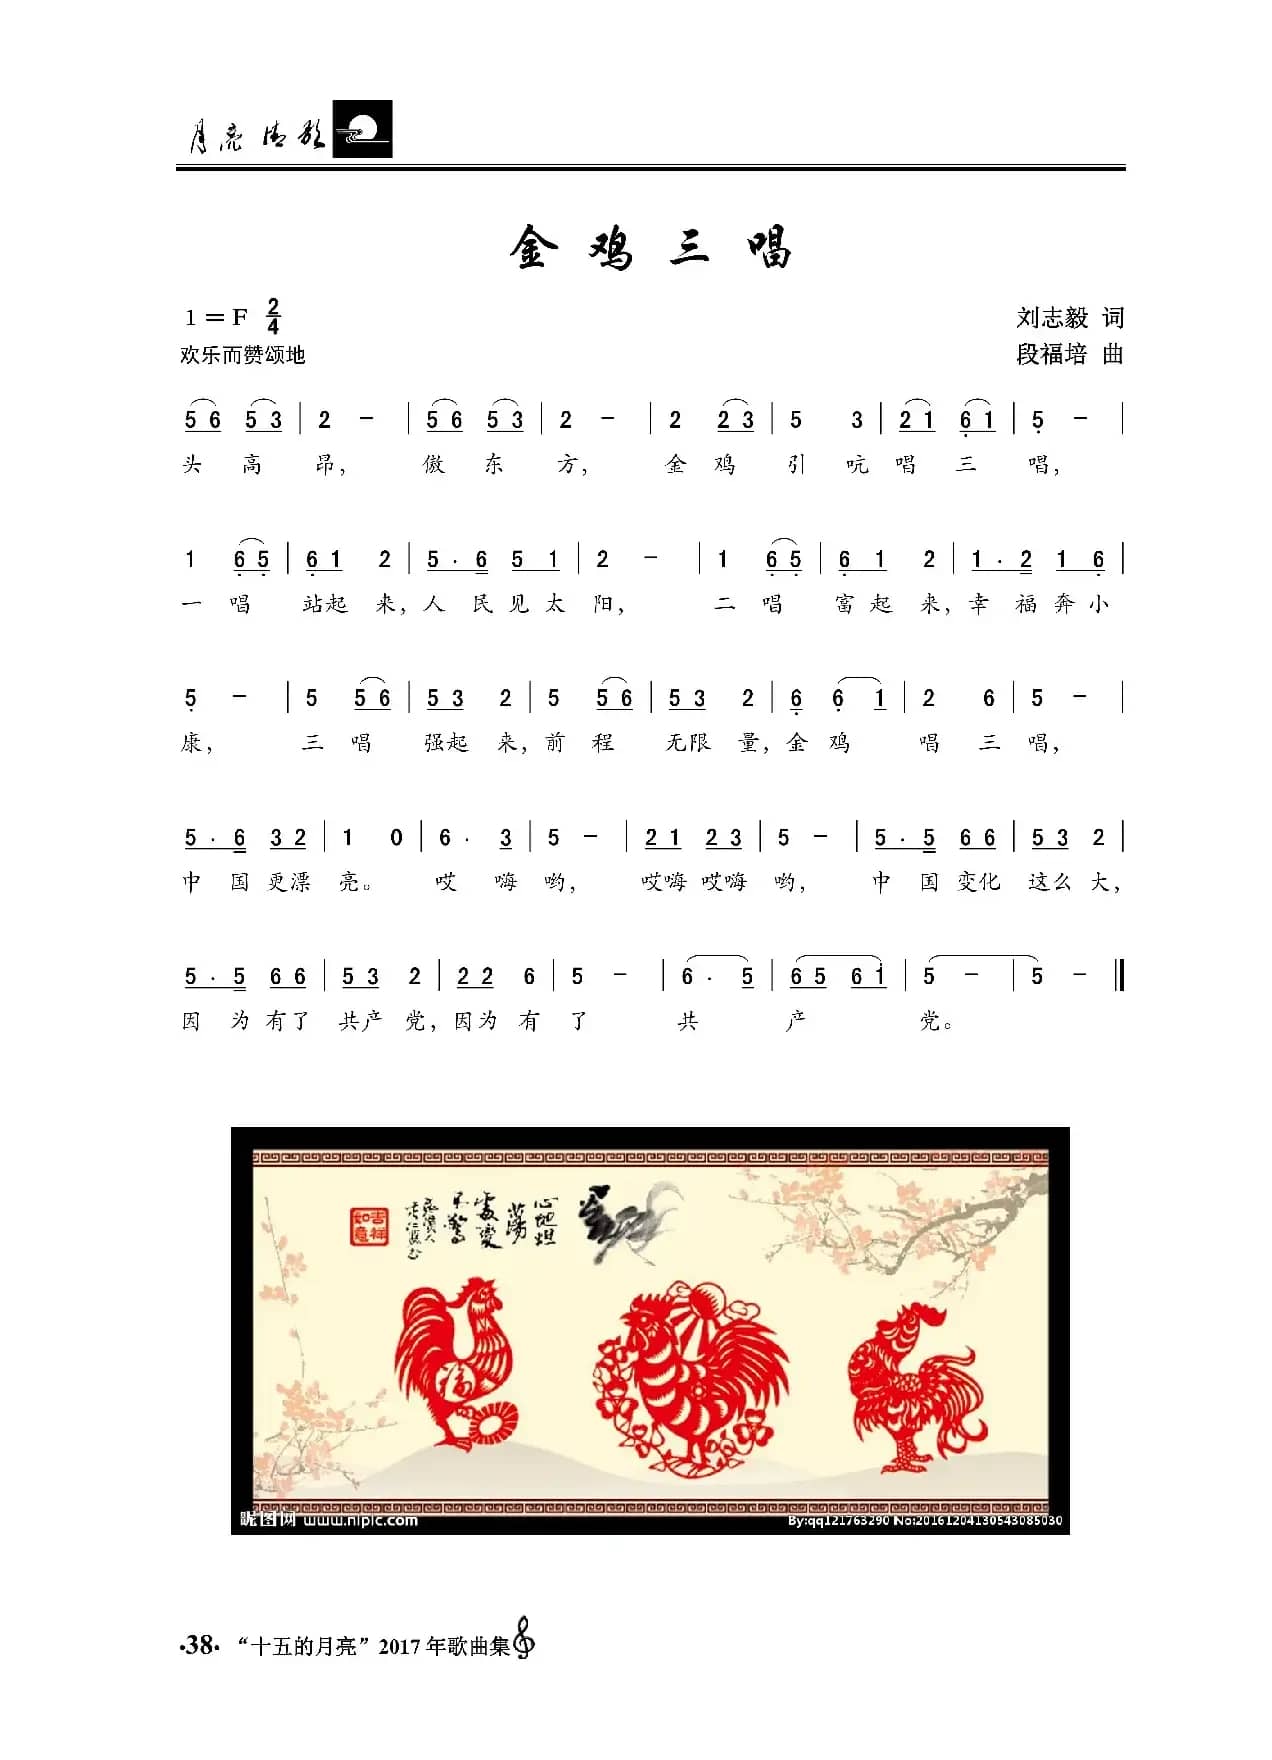 月亮诗歌
金鸡三唱
1＝F 2/4
刘志毅 词
欢乐而赞颂地
段福培 曲
5 6 5 3 | 2 － | 5 6 5 3 | 2 － | 2 2 3 | 5 3 | 2 1 6 1 | 5 － |
头 高 昂， 傲 东 方， 金 鸡 引 吭 唱 三 唱，
1 6 5 | 6 1 2 | 5 · 6 5 1 | 2 － | 1 6 5 | 6 1 2 | 1 · 2 1 6 |
一 唱 站起 来，人 民 见 太 阳， 二 唱 富 起 来，幸 福 奔 小
5 － | 5 5 6 | 5 3 2 | 5 5 6 | 5 3 2 | 6 6 1 | 2 6 | 5 － |
康， 三 唱 强起 来，前 程 无限 量，金 鸡 唱 三 唱，
5 · 6 3 2 | 1 0 | 6 · 3 | 5 － | 2 1 2 3 | 5 － | 5 · 5 6 6 | 5 3 2 |
中 国 更漂 亮。 哎 嗨 哟， 哎嗨 哎嗨 哟， 中 国 变化 这么 大，
5 · 5 6 6 | 5 3 2 | 2 2 6 | 5 － | 6 · 5 | 6 5 6 i | 5 － | 5 － ‖
因 为 有了 共产 党，因为 有 了 共 产 党。
心地坦
荡
处变
不惊
吉祥如意
昵图网 www.nipic.com
By:qq121763290 No:20161204130543085030
·38· “十五的月亮”2017年歌曲集